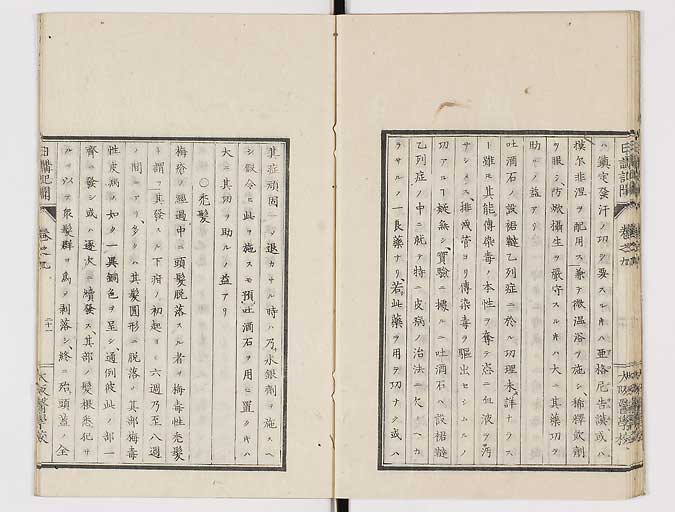 ハ鎮定發汗ノ功ヲ要スレキハ亜格尼告謨或ハ
撲尓非涅ヲ配用ス兼テ微温浴ヲ施シ稀釋飲劑
ヲ服シ防欬攝生ヲ嚴守スルキハ大ニ其藥功ヲ
助ルノ益アリ
吐酒石ノ設裙韃乙列症ニ於ル功理未詳ナラス
ト雖モ其能傳染毒ノ本性ヲ奪テ恣ニ血液ヲ
サシメス排泄管ヨリ傳染毒ヲ驅出セシムルノ
功アルト妖無シ實驗ニ據ルニ吐酒石ハ設裙韃
乙列症ノ中ニ就テ特ニ皮病ノ治法ニ欠ヘカ
ラサルノ一良藥ナリ若此藥ヲ用テ功ナク或ハ
日講記聞 巻之九 大阪醫學校
其症頑固ニノ退カサル時ハ乃水銀劑ヲ施スヘ
シ假令ヒ此ヲ施スモ預吐酒石ヲ用ヒ置クキハ
大ニ其功ヲ助ルノ益アリ
〇禿髮
梅瘡ノ經過中ニ頭髮脱落スル者ヲ梅毒性禿髮
ト謂フ其發スル下疳ノ初起ヨリ六週乃至八週
ノ間ニアリ多クハ其髮圓形ニ脱落ノ其部梅毒
性皮病ノ如ク一異銅色ヲ呈シ通例彼此ノ部一
齊ニ發シ或ハ逐次ニ續發ス其部ノ髮根悉犯サ
ルヲ以テ衆髮群ヲ為ノ剥落シ終ニ殆頭蓋ノ全
日講記聞 巻之九 二十一 大阪醫學校